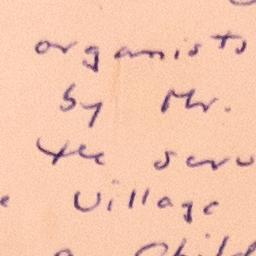 organists
by Mr.
the serv
Village
Child